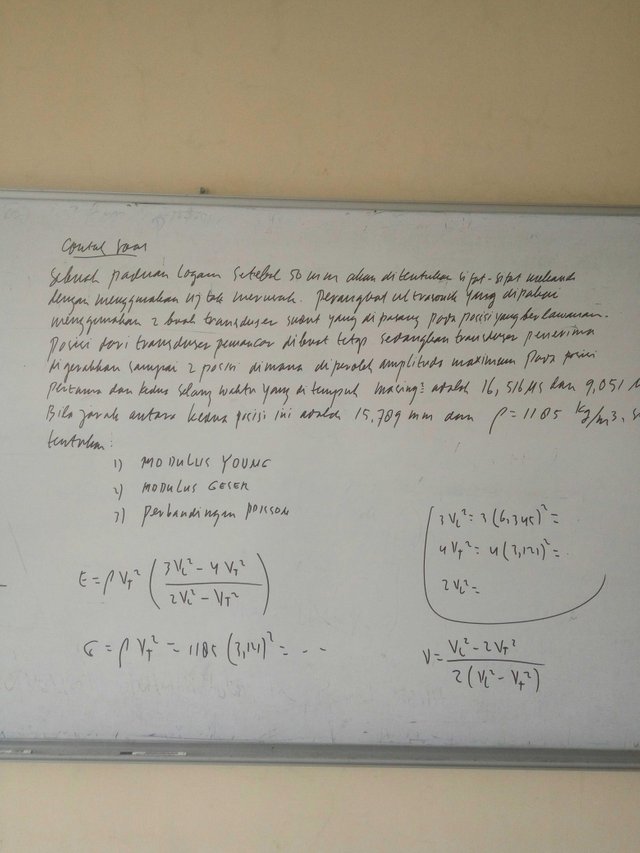 Contoh soal
Sebuah paduan logam setebal 50 mm akan ditentukan sifat-sifat mekanik
dengan menggunakan uji tak merusak. Perangkat ultrasonik yang dipakai
menggunakan 2 buah transduser sudut yang dipasang pada posisi yang berlawanan.
Posisi dari transduser pemancar dibuat tetap sedangkan transduser penerima
digerakkan sampai 2 posisi dimana diperoleh amplitudo maximum pada posisi
pertama dan kedua selang waktu yang ditempuh masing² adalah 16,516 μs dan 9,051
Bila jarak antara kedua posisi ini adalah 15,789 mm dan ρ = 1185 kg/m3,
tentukan:
1) MODULUS YOUNG
2) MODULUS GESER
3) Perbandingan POISSON
3VL² = 3(6,345)² =
4VT² = 4(3,121)² =
2VL² =
E = ρ VT² ( (3VL² - 4VT²) / (2VL² - VT²) )
G = ρ VT² = 1185 (3,121)² = ...
V = (VL² - 2VT²) / (2(VL² - VT²))